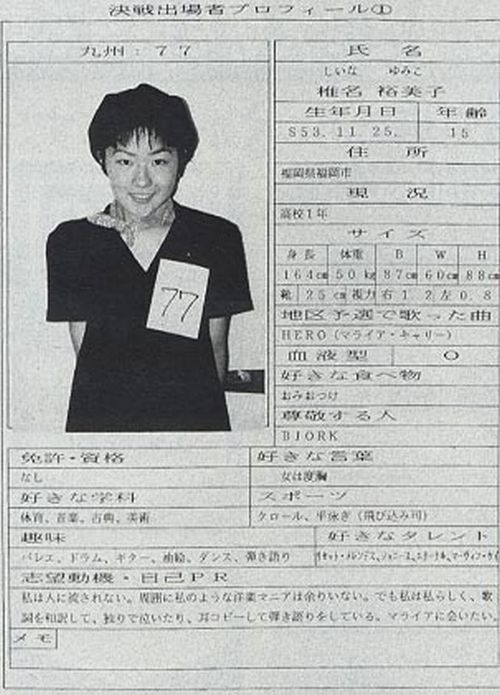 決戦出場者プロフィール①
九州:77
氏 名
しいな ゆみこ
椎名 裕美子
生年月日 年齢
S53.11 25. 15
住 所
福岡県福岡市
現 況
高校1年
サイズ
身長 体重 B W H
164㎝ 50㎏ 87㎝ 60㎝ 88㎝
靴 25㎝ 視力右1 2左0.8
地区予選で歌った曲
HERO(マライア・キャリー)
血液型 O
好きな食べ物
おみおつけ
尊敬する人
BJORK
77
免許・資格 好きな言葉
なし 女は度胸
好きな学科 スポーツ
体育、音楽、古典、美術 クロール、平泳ぎ(飛び込み可)
趣味 好きなタレント
バレエ、ドラム、ギター、油絵、ダンス、弾き語り
志望動機・自己PR
私は人に流されない。周囲に私のような洋楽マニアは余りいない。でも私は私らしく、歌
詞を和訳して、独りで泣いたり、耳コピーして弾き語りをしている。マライアに会いたい。
メモ